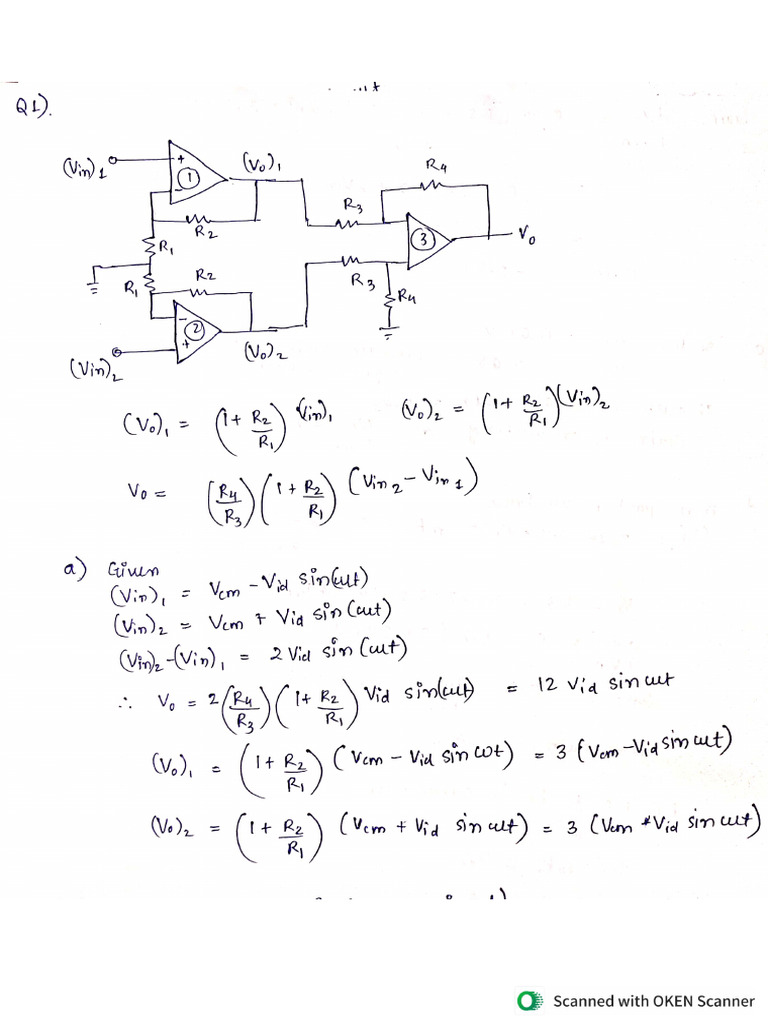 Q1).
(Vin)₁
+
-
1
(V₀)₁
R₂
R₁
R₁
R₂
-
+
2
(Vin)₂
(V₀)₂
R₃
R₄
3
V₀
R₃
R₄
(V₀)₁ = (1 + R₂/R₁) (Vin)₁ (V₀)₂ = (1 + R₂/R₁) (Vin)₂
V₀ = (R₄/R₃) (1 + R₂/R₁) (Vin₂ - Vin₁)
a) Given
(Vin)₁ = Vcm - Vid sin(ωt)
(Vin)₂ = Vcm + Vid sin(ωt)
(Vin)₂-(Vin)₁ = 2 Vid sin(ωt)
∴ V₀ = 2 (R₄/R₃) (1 + R₂/R₁) Vid sin(ωt) = 12 Vid sin ωt
(V₀)₁ = (1 + R₂/R₁) (Vcm - Vid sin ωt) = 3 (Vcm - Vid sin ωt)
(V₀)₂ = (1 + R₂/R₁) (Vcm + Vid sin ωt) = 3 (Vcm + Vid sin ωt)
Scanned with OKEN Scanner